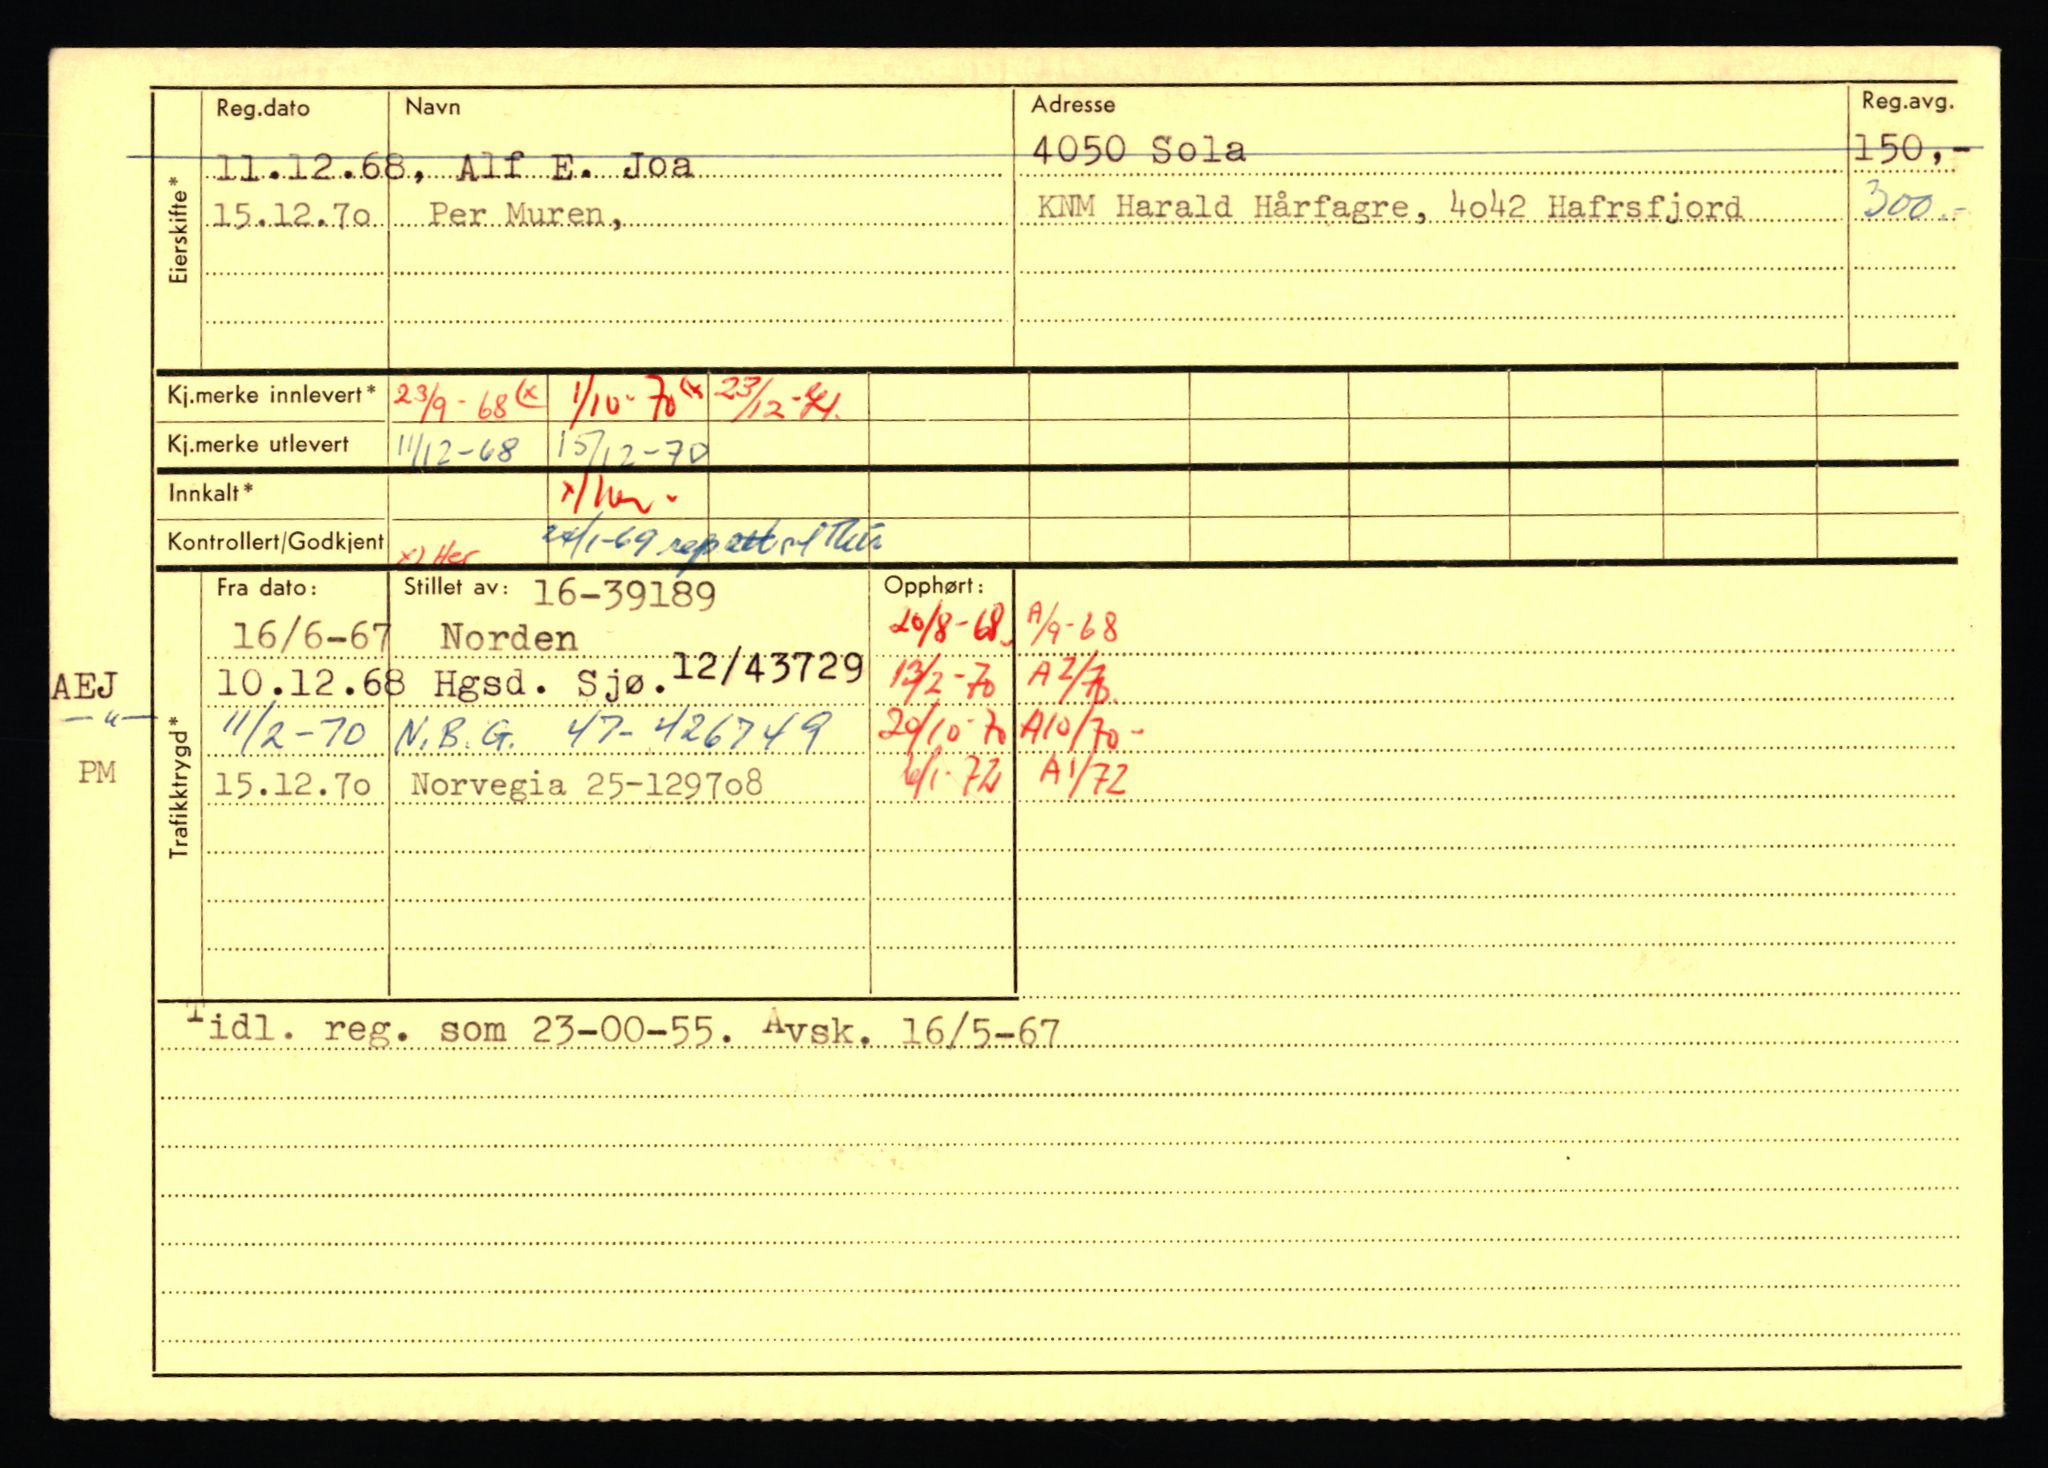 Reg.dato Navn Adresse Reg.avg.
11.12.68, Alf E. Joa 4050 Sola 150,-
15.12.7o Per Muren, KNM Harald Hårfagre, 4o42 Hafrsfjord 300.-
Eierskifte*
Kj.merke innlevert* 23/9-68 (x 1/10-70 (x 23/12-71.
Kj.merke utlevert 11/12-68 15/12-70
Innkalt* x/
Kontrollert/Godkjent x) Her 24/1-69
Fra dato: Stillet av: 16-39189 Opphørt:
16/6-67 Norden 20/8-68. A/9-68
AEJ 10.12.68 Hgsd. Sjø. 12/43729 13/2-70 A2/70.
—"— 11/2-70 N.B.G. 47-426749 20/10-70 A10/70-
PM 15.12.7o Norvegia 25-1297o8 6/1-72 A1/72
Trafikktrygd*
Tidl. reg. som 23-00-55. Avsk. 16/5-67